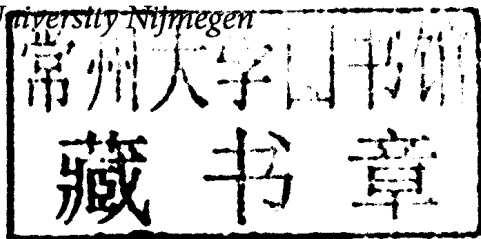 University Nijmegen
常州大学图书馆
藏书章